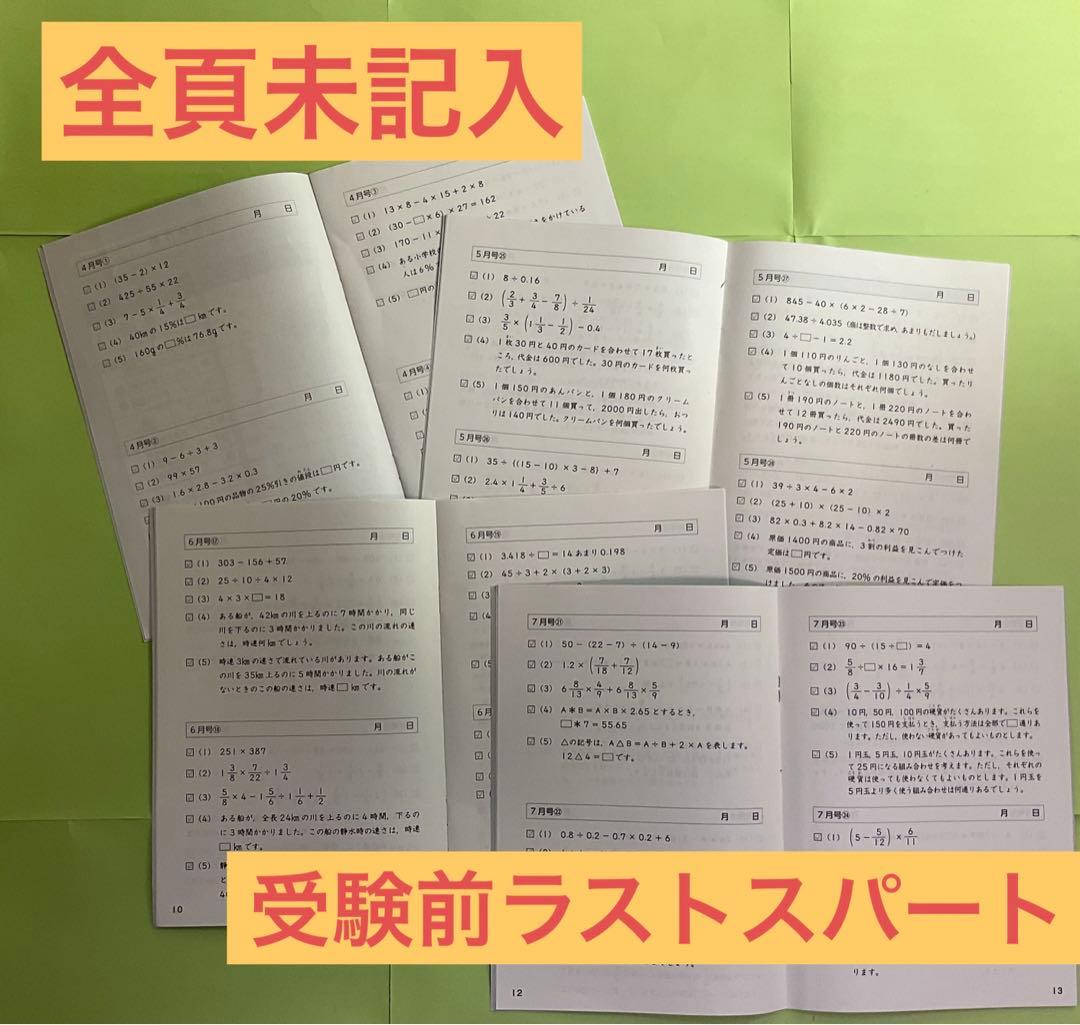 全頁未記入
4月号①
月 日
(1) (35－2)×12
(2) 425÷55×22
(3) 7－5×1/4＋3/4
(4) 40kmの15%は□kmです。
(5) 160gの□%は76.8gです。
4月号②
月 日
(1) 9－6÷3＋3
(2) 99×57
(3) 1.6×2.8－3.2×0.3
100円の品物の25%引きの値段は□円です。
円の20%です。
4月号③
月 日
(1) 13×8－4×15＋2×8
(2) (30－□×6)×27＝162
(3) 170－11×
22
(4) ある小学校
をかけている
人は6%
(5) □円の
4月号④
(1)
(2)
(3)
5月号㉕
月 日
(1) 8÷0.16
(2) (2/3＋3/4－7/8)÷1/24
(3) 3/5×(1 1/3－1/2)－0.4
(4) 1枚30円と40円のカードを合わせて17枚買ったと
ころ，代金は600円でした。30円のカードを何枚買っ
たでしょう。
(5) 1個150円のあんパンと，1個180円のクリーム
パンを合わせて11個買って，2000円出したら，おつ
りは140円でした。クリームパンを何個買ったでしょう。
5月号㉖
月 日
(1) 35÷{(15－10)×3－8}＋7
(2) 2.4×1 1/4＋3/5÷6
5月号㉗
月 日
(1) 845－40×(6×2－28÷7)
(2) 47.38÷4.035 (商は整数で求め，あまりもだしましょう。)
(3) 4÷□－1＝2.2
(4) 1個110円のりんごと，1個130円のなしを合わせ
て10個買ったら，代金は1180円でした。買ったり
んごとなしの個数はそれぞれ何個でしょう。
(5) 1冊190円のノートと，1冊220円のノートを合わ
せて12冊買ったら，代金は2490円でした。買った
190円のノートと220円のノートの冊数の差は何冊で
しょう。
5月号㉘
月 日
(1) 39÷3×4－6×2
(2) (25＋10)×(25－10)×2
(3) 82×0.3＋8.2×14－0.82×70
(4) 原価1400円の商品に，3割の利益を見こんでつけた
定価は□円です。
(5) 原価1500円の商品に，20%の利益を見こんで定価をつ
6月号⑰
月 日
(1) 303－156＋57
(2) 25÷10÷4×12
(3) 4×3×□＝18
(4) ある船が，42kmの川を上るのに7時間かかり，同じ
川を下るのに3時間かかりました。この川の流れの速
さは，時速何kmでしょう。
(5) 時速3kmの速さで流れている川があります。ある船がこ
の川を35km上るのに5時間かかりました。川の流れが
ないときのこの船の速さは，時速□kmです。
6月号⑱
月 日
(1) 251×387
(2) 1 3/8×7/22÷1 3/4
(3) 5/8×4－1 5/6÷1 1/6＋1/2
(4) ある船が，全長24kmの川を上るのに4時間，下るの
に3時間かかりました。この船の静水時の速さは，時速
□kmです。
(5) 静
10
6月号⑲
月 日
(1) 3.418÷□＝14あまり0.198
(2) 45÷3＋2×(3＋2×3)
(3)
(4)
(5)
6月号
(1)
(2)
(3)
(4)
7月号㉑
月 日
(1) 50－(22－7)÷(14－9)
(2) 1.2×(7/18＋7/12)
(3) 6 8/13×4/9＋6 8/13×5/9
(4) A＊B＝A×B×2.65とするとき，
□＊7＝55.65
(5) △の記号は，A△B＝A÷B＋2×Aを表します。
12△4＝□です。
7月号㉒
月 日
(1) 0.8÷0.2－0.7×0.2＋6
12
7月号㉓
月 日
(1) 90÷(15÷□)＝4
(2) 5/8÷□×16＝1 3/7
(3) (3/4－3/10)÷1/4×5/9
(4) 10円，50円，100円の硬貨がたくさんあります。これらを
使って150円を支払うとき，支払う方法は全部で□通りあ
ります。ただし，使わない硬貨があってもよいものとします。
(5) 1円玉，5円玉，10円玉がたくさんあります。これらを使っ
て25円になる組み合わせを考えます。ただし，それぞれの
硬貨は使っても使わなくてもよいものとします。1円玉を
5円玉より多く使う組み合わせは何通りあるでしょう。
7月号㉔
月 日
(1) (5－5/12)×6/11
ります。
13
受験前ラストスパート